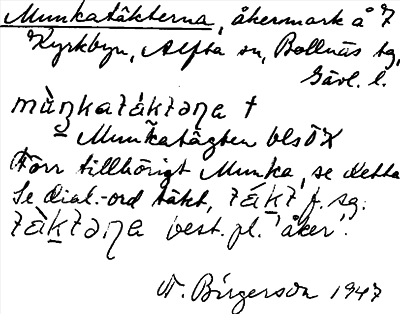 Munkatäkterna, åkermark å 7
Kyrkbyn, Alfta sn, Bollnäs tg,
Gävl. l.
mùŋkatáktəṇa †
= Munkatägten blsÖK
Förr tillhörigt Munka, se detta
Se dial.-ord täkt, tákt f. sg.
tàktəṇa best. pl. 'åker'.
N. Birgerson 1947